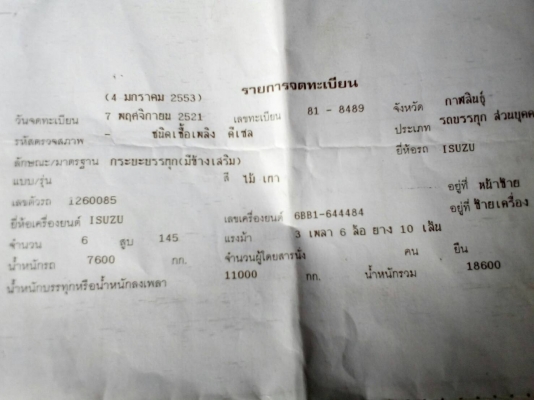 รายการจดทะเบียน
(4 มกราคม 2553)
วันจดทะเบียน 7 พฤศจิกายน 2521 เลขทะเบียน 81 - 8489 จังหวัด กาฬสินธุ์
รหัสตรวจสภาพ - ชนิดเชื้อเพลิง ดีเซล ประเภท รถบรรทุก ส่วนบุคค
ลักษณะ/มาตรฐาน กระบะบรรทุก(มีข้างเสริม) ยี่ห้อรถ ISUZU
แบบ/รุ่น สี ไม้ เทา
เลขตัวรถ 1260085 อยู่ที่ หน้าซ้าย
ยี่ห้อเครื่องยนต์ ISUZU เลขเครื่องยนต์ 6BB1-644484 อยู่ที่ ซ้ายเครื่อง
จำนวน 6 สูบ 145 แรงม้า 3 เพลา 6 ล้อ ยาง 10 เส้น
น้ำหนักรถ 7600 กก. จำนวนผู้โดยสารนั่ง คน ยืน
น้ำหนักบรรทุกหรือน้ำหนักลงเพลา 11000 กก. น้ำหนักรวม 18600